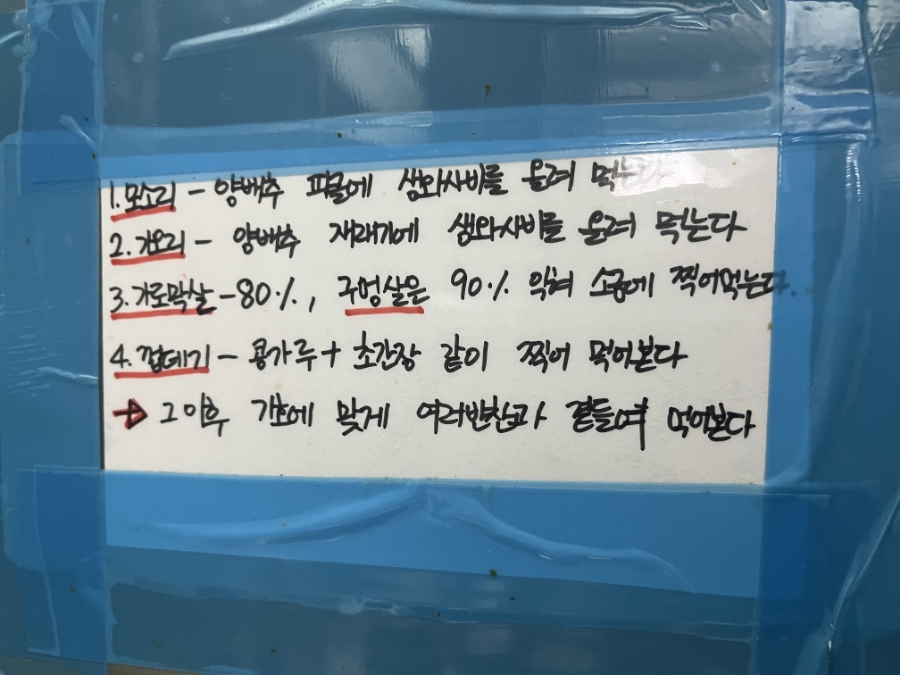 1. 모소리 - 양배추 피클에 생와사비를 올려 먹는다
2. 가오리 - 양배추 재래기에 생와사비를 올려 먹는다
3. 가로막살 - 80%, 구멍살은 90% 익혀 소금에 찍어먹는다.
4. 껍데기 - 콩가루 + 초간장 같이 찍어 먹어본다
→ 그 이후 기호에 맞게 여러반찬과 곁들여 먹어본다